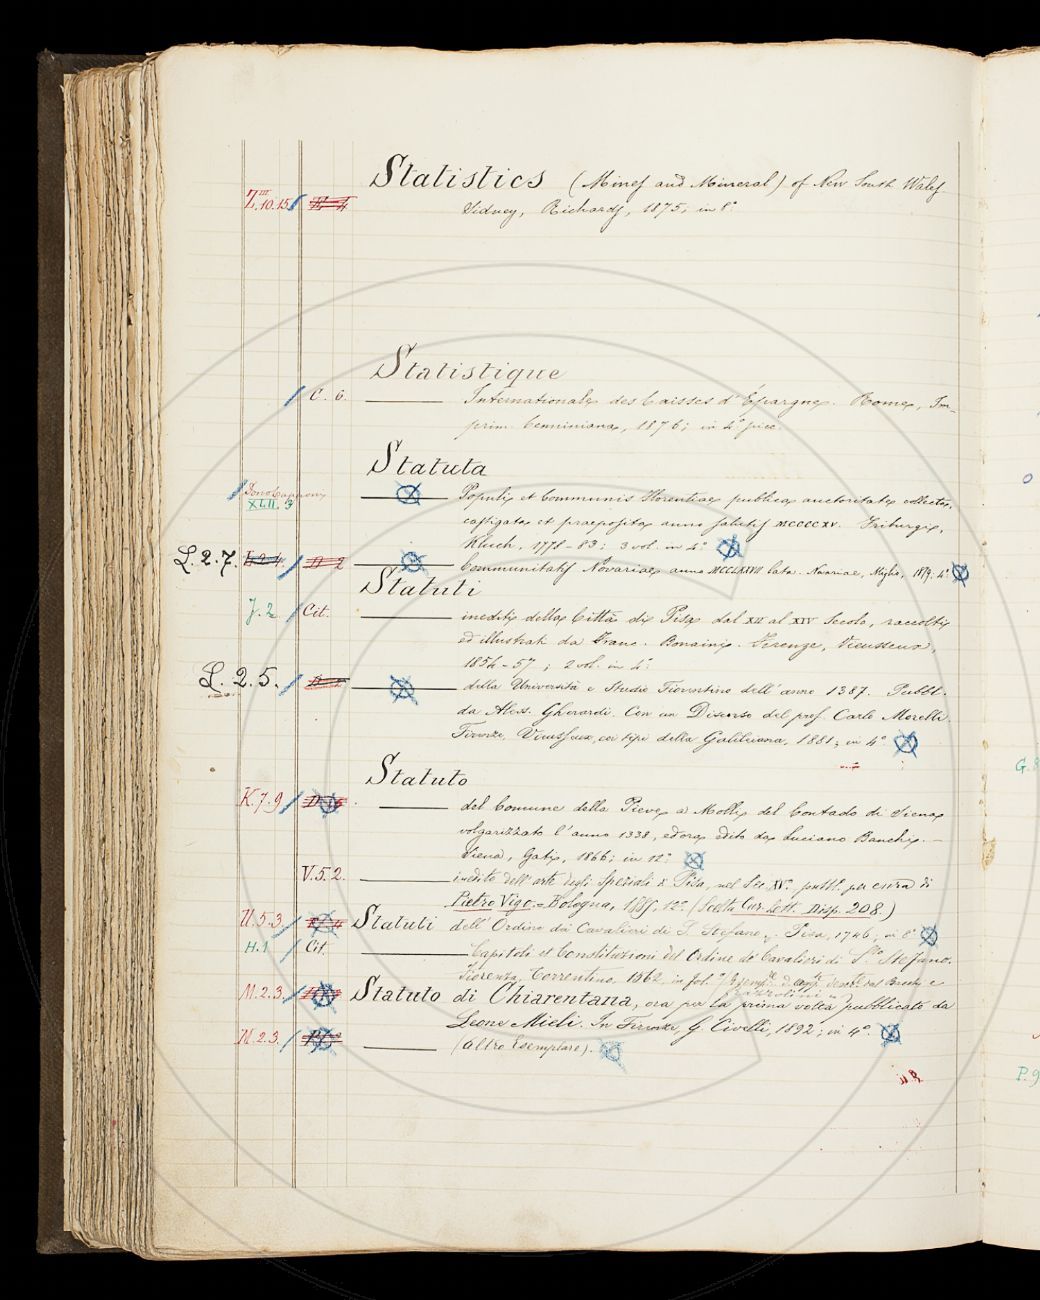 Statistics (Mines and Mineral) of New South Wales
Z.III.10.15
Sidney, Richards, 1875; in 8°
Statistique
C. 6. Internationale des Caisses d'Épargne. Rome, Im-
prim. Cenniniana, 1876; in 4° picc.
Statuta
XLII. 3 Populi et Communis Florentiae publica auctoritate collecta,
castigata et praeposita anno salutis MCCCCXV. Friburgi,
Kluch, 1778-83; 3 vol. in 4°
L.2.7. D 2 Communitatis Novariae anno MCCLXXVII lata. Novariae, 1879. 4°
Statuti
J.2 Cit. inediti della Città di Pisa dal XII al XIV Secolo, raccolti
ed illustrati da Franc. Bonaini. Firenze, Vieusseux,
1854-57; 2 vol. in 4°
L.2.5. della Università e Studio Fiorentino dell'anno 1387. Pubbl.
da Aless. Gherardi. Con un Discorso del prof. Carlo Morelli.
Firenze, Vieusseux, coi tipi della Galileiana, 1881; in 4°
Statuto
K.7.9 del Comune della Pieve a Molli del Contado di Siena
volgarizzato l'anno 1338, ed ora edito da Luciano Banchi. —
Siena, Gati, 1866; in 12°
V.5.2. inedito dell'arte degli Speziali di Pisa, nel Sec. XV. pubbl. per cura di
Pietro Vigo. = Bologna, 1885. 12°. (Scelta Cur. Lett. Disp. 208.)
U.5.3 Statuti dell'Ordine dei Cavalieri di S. Stefano. Pisa, 1746; in 8°
H.1 Cit. Capitoli et Constitutioni del Ordine de Cavalieri di S.to Stefano.
Fiorenza, Torrentino, 1562, in fol.
M.2.3 Statuto di Chiarentana, ora per la prima volta pubblicato da
Leone Mieli. In Firenze, G. Civelli, 1892; in 4°
M.2.3. (Altro Esemplare).
G.8
P.9